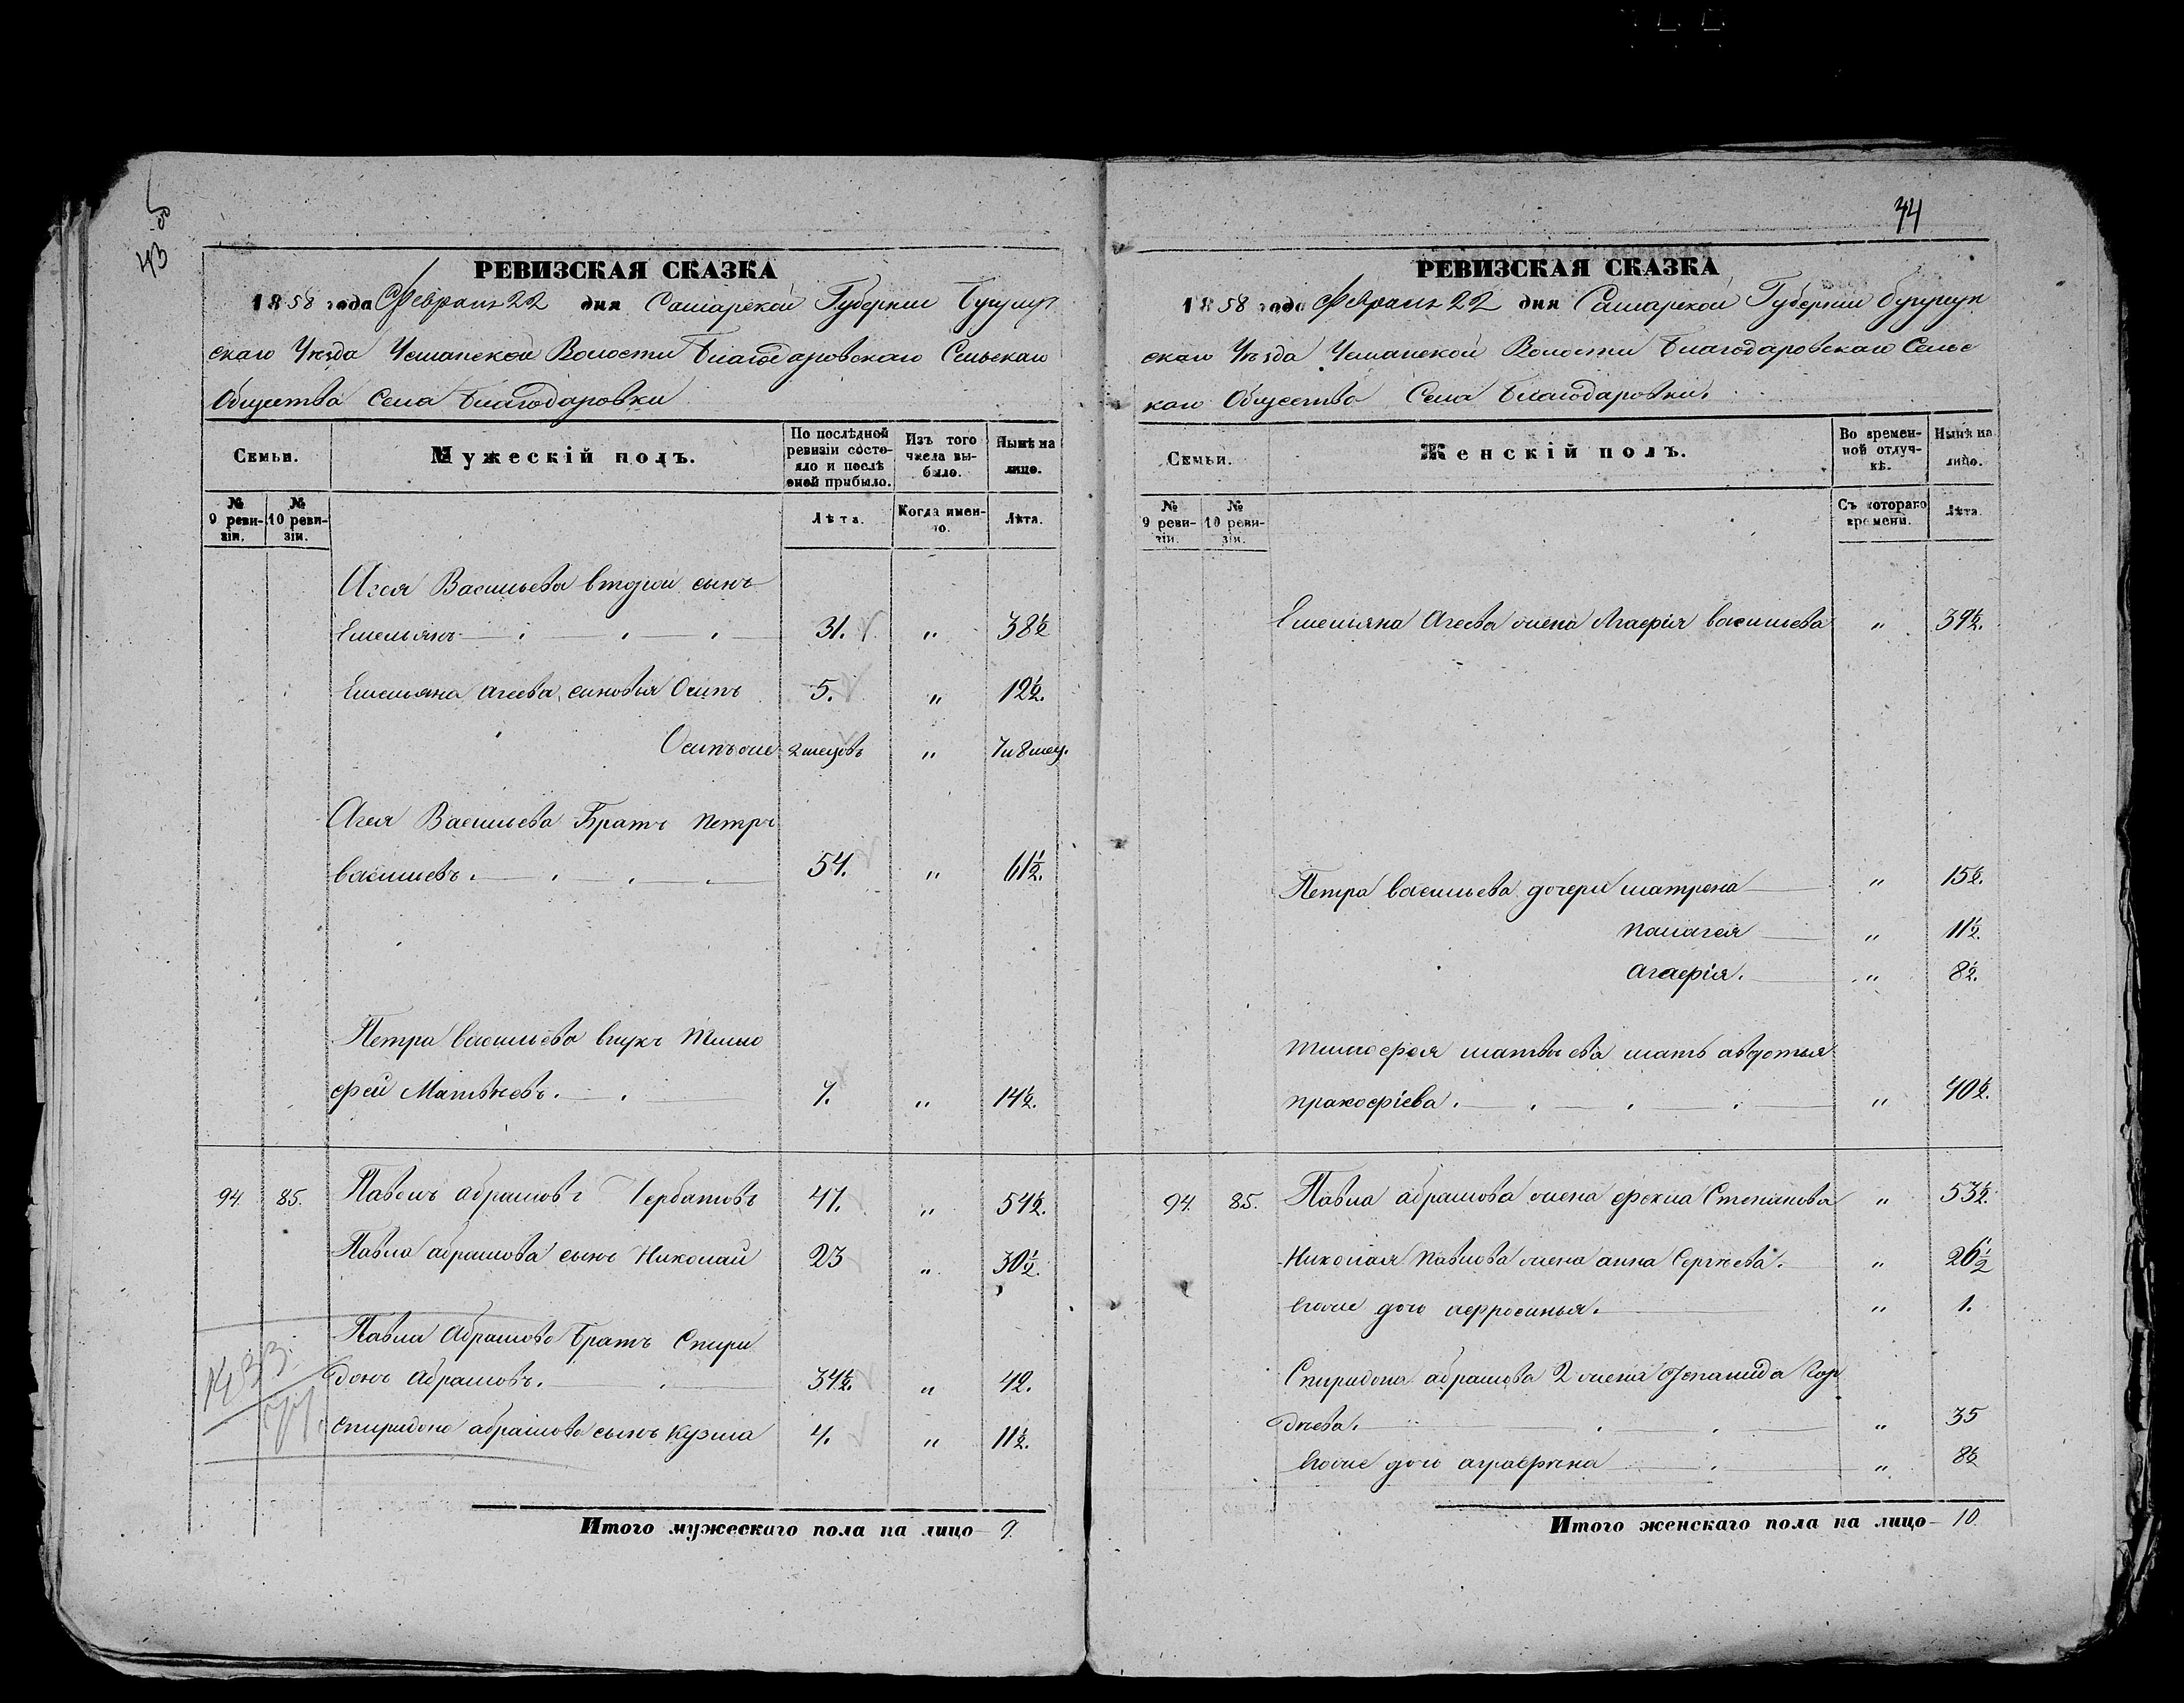 43 об
РЕВИЗСКАЯ СКАЗКА
1858 года Февраля 22 дня Самарской Губернии Бугурус
скаго Уѣзда Чешанской Волости Благодаровскаго Сельскаго
Общества Села Благодаровки
Семьи.
Мужескій полъ.
По послѣдней ревизіи состояло и послѣ оной прибыло.
Изъ того числа выбыло.
Нынѣ на лицо.
№ 9 ревизіи.
№ 10 ревизіи.
Лѣта.
Когда именно.
Лѣта.
Агея Васильева второй сынъ
Емельянъ 31. „ 38½
Емельяна Агеева сыновья Осипъ 5. „ 12½.
Осипъ же 2 месецовъ „ 7 и 8 мец.
Агея Васильева Братъ Петръ
Васильевъ. 54. „ 61½.
Петра Васильева внукъ Тимо
фей Матвѣевъ. 7. „ 14½.
94. 85. Павелъ Абрамовъ Горбатовъ 47. „ 54½.
Павла Абрамова сынъ Николай 23 „ 30½.
Павла Абрамова Братъ Спири
донъ Абрамовъ. 34½. „ 42.
Спиридона Абрамова сынъ Кузма 4. „ 11½.
Итого мужескаго пола на лицо 9.
44
РЕВИЗСКАЯ СКАЗКА
1858 года Февраля 22 дня Самарской Губернии Бугурус
скаго Уѣзда Чешанской Волости Благодаровскаго Сельс
каго Общества Села Благодаровки.
Семьи.
Женскій полъ.
Во временной отлучкѣ.
Нынѣ на лицо.
№ 9 ревизіи.
№ 10 ревизіи.
Съ котораго времени.
Лѣта.
Емельяна Агеева жена Агафія Васильева „ 39½.
Петра Васильева дочери Матрена „ 15½.
Палагея „ 11½.
Агафія. „ 8½.
Тимофея Матвѣева мать Авдотья
Пракофіева. „ 40½.
94. 85. Павла Абрамова жена Фекла Степанова „ 53½.
Николая Павлова жена Анна Сергѣева. „ 26½
Егоже дочь Аефросинья. „ 1.
Спиридона Абрамова 2 жена Степанида Гор
дѣева. „ 35
Егоже дочь Аграфѣна „ 8½
Итого женскаго пола на лицо 10.